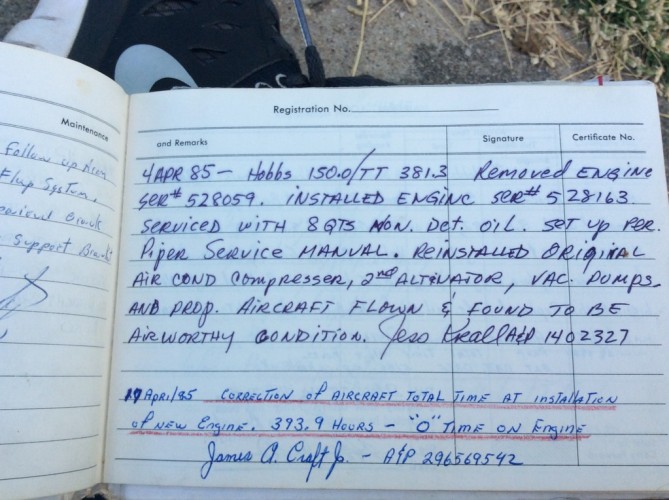 Maintenance
Follow up Accy
Flap System.
Support Brackt
Registration No.
and Remarks Signature Certificate No.
4APR 85 - Hobbs 150.0/TT 381.3 Removed ENGINE
SER# 528059. INSTALLED ENGINE SER# 528163.
SERVICED WITH 8 QTS NON. Det. OIL. SET UP PER.
Piper Service MANUAL. REINSTALLED ORIGINAL
AIR COND Compresser, 2nd ALTINATOR, VAC. PUMPS.
AND PROP. AIRCRAFT FLOWN & FOUND TO BE
AIRWORTHY CONDITION. Jess Krall A&P 1402327
17 April/85 CORRECTION of AIRCRAFT TOTAL TIME AT INSTALLATION
of NEW Engine. 393.9 HOURS - "O" TIME ON Engine
James A. Craft Jr. - A&P 296569542